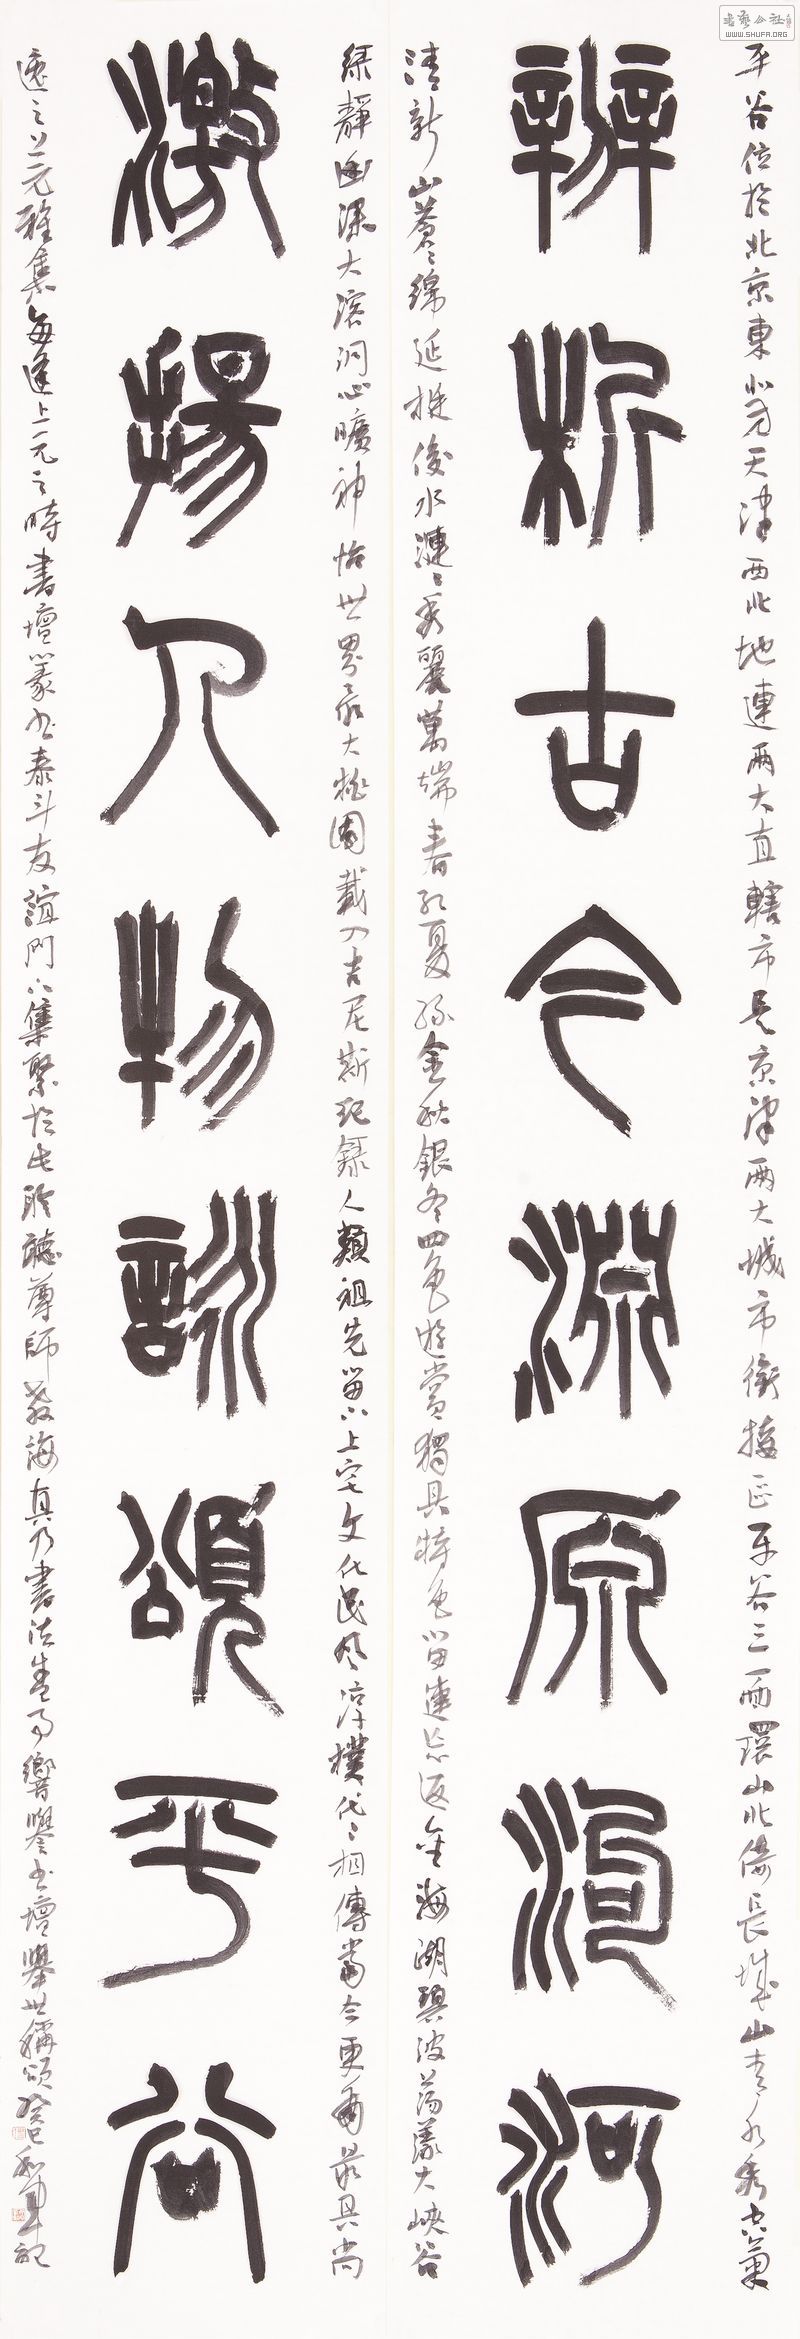 平谷位於北京東北是天津西北地連兩大直轄市是京津兩大城市銜接區平谷三面環山北倚長城山青水秀空氣
辨析古今淵源洵河
清新山蒼蒼綿延挺俊水漣漣秀麗萬端春紅夏綠金秋銀冬四色遊賞獨具特色留連忘返金海湖碧波蕩漾大峽谷
綠靜幽深大溶洞心曠神怡世界最大桃園載入吉尼斯紀錄人類祖先留下上宅文化民風淳樸代代相傳當今更有最具尚
激揚人物詠頌平谷
遠之上元雅集每逢上元之時書壇篆書泰斗友誼門下集聚於此聆聽尊師教誨真乃書法盛事響譽書壇舉世稱頌癸巳和軍記
書藝公社
WWW.SHUFA.ORG